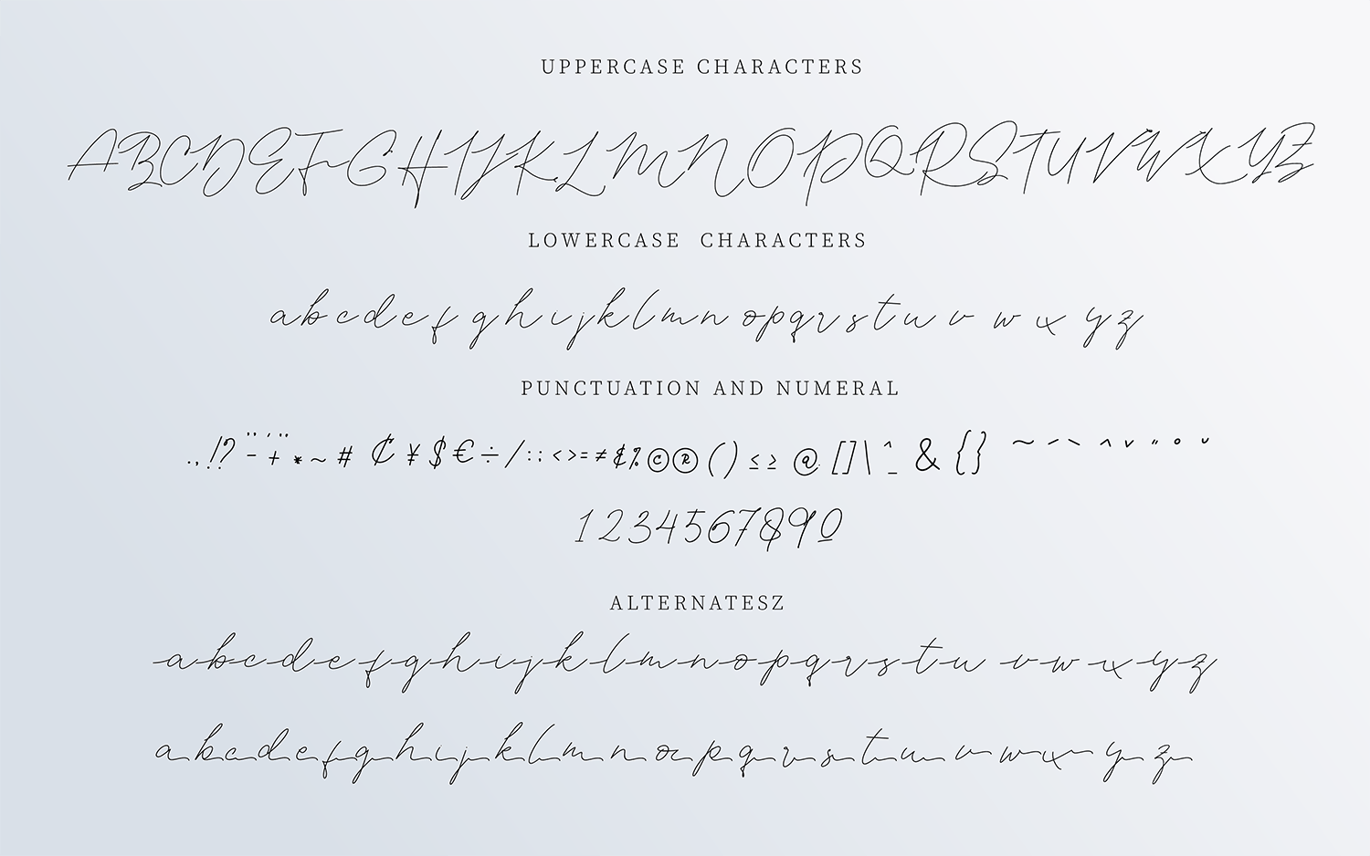 UPPERCASE CHARACTERS
ABCDEFGHIJKLMNOPQRSTUVWXYZ
LOWERCASE CHARACTERS
abcdefghijklmnopqrstuvwxyz
PUNCTUATION AND NUMERAL
.,!?"-'+¨*~# ₵¥$€÷/:;<>=≠¢%©®()≤≥@[]\^_&{} ~´`^ˇ"°˘
1234567890
ALTERNATESZ
abcdefghijklmnopqrstuvwxyz
abcdefghijklmnopqrstuvwxyz